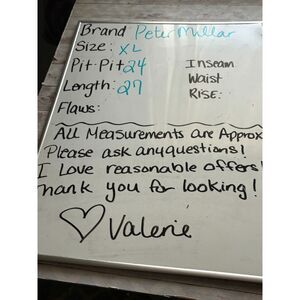 Brand Peter Millar
Size: XL
Pit-Pit 24 Inseam
Length: 27 Waist
Rise:
Flaws:
All Measurements are Approx
Please ask any questions!
I Love reasonable offers!
hank you for looking!
♡ Valerie